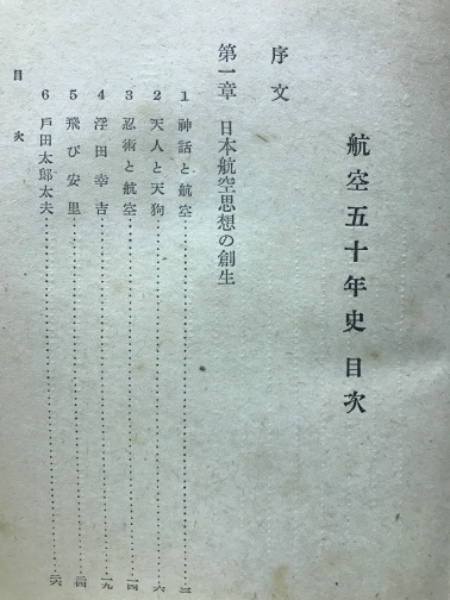 航空五十年史 目次
序文
第一章 日本航空思想の創生
1 神話と航空……三
2 天人と天狗……六
3 忍術と航空……一四
4 浮田幸吉……一九
5 飛び安里……二四
6 戸田太郎太夫……二六
目次